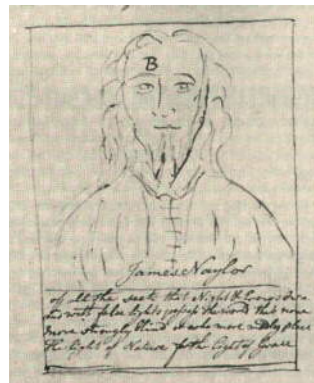 B
James Naylor
of all the sects that Night &
and with false lights possess the world that none
more strongly blind & who more place
the light of Nature for the light of Grace